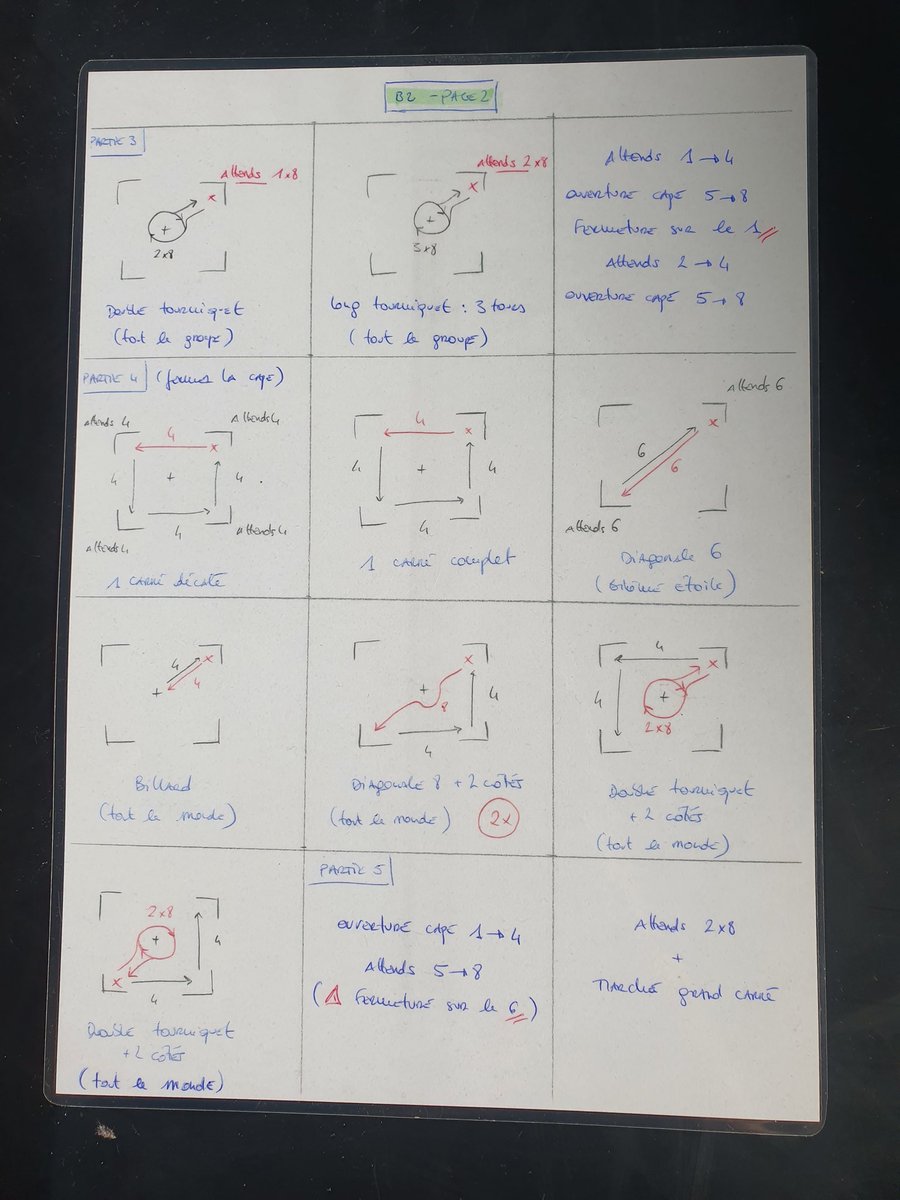 B2 - PAGE 2
PARTIE 3
Attends 1x8
x
+
2x8
Double tourniquet
(tout le groupe)
Attends 2x8
x
+
3x8
Long tourniquet : 3 tours
(tout le groupe)
Attends 1 → 4
OUVERTURE CAPE 5 → 8
FERMETURE SUR le 1
Attends 2 → 4
OUVERTURE CAPE 5 → 8
PARTIE 4 (fermer la cape)
Attends 4
Attends 4
4
x
4
+
4
4
Attends 4
Attends 4
1 CARRÉ décalé
4
x
4
+
4
4
1 CARRÉ complet
Attends 6
x
6
6
Attends 6
DIAGONALE 6
(ÉTOILE)
4
x
4
+
BILLARD
(tout le monde)
x
+
8
4
4
DIAGONALE 8 + 2 CÔTÉS
(tout le monde)
2x
4
x
4
+
2x8
Double tourniquet
+ 2 CÔTÉS
(tout le monde)
2x8
+
4
x
4
Double tourniquet
+ 2 CÔTÉS
(tout le monde)
PARTIE 5
OUVERTURE CAPE 1 → 4
Attends 5 → 8
(⚠ FERMETURE SUR le 6)
Attends 2x8
+
MARCHE GRAND CARRÉ